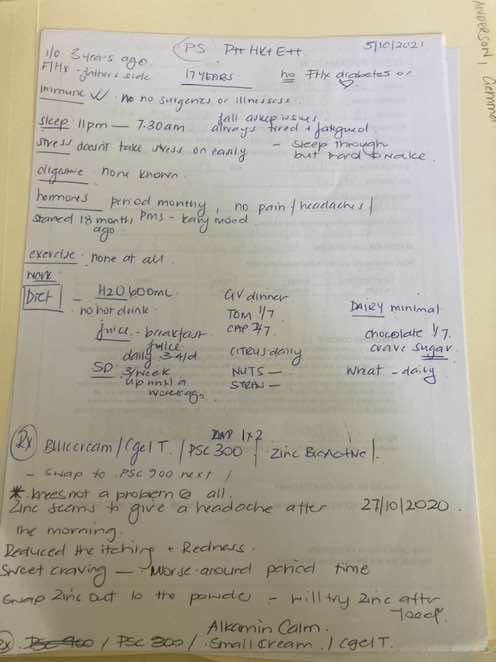 ANDERSON, Gemma
PS P++ HK+ E++ 5/10/2021
i/o 3 years ago
F/Hx - father's side 17 YEARS no FHx diabetes or
immune no no surgeries or illnesses.
fall asleep issues
sleep: 11pm — 7.30am always tired + fatigued
stress doesn't take stress on easily - sleep through
but hard to wake.
digestive none known.
hormones period monthly, no pain/headaches/
started 18 months PMS -
ago.
exercise none at all.
work
DIET - H2O 600mL. GV dinner
no hot drink. TOM 1/7 DAIRY minimal
juice - breakfast CAP chocolate 1/7.
juice
daily 3-4/d CITRUS daily crave sugar
SD: 3/week NUTS — wheat - daily
up until a STRAW —
week ago
1x2
Rx Bluecream / Cgel T. / PSC 300 / Zinc BioActive /.
- swap to PSC 900 next /
* knees not a problem @ all.
Zinc seems to give a headache after 27/10/2020.
the morning.
Reduced the itching + Redness.
Sweet craving — worse around period time
swap zinc out to the powder - will try zinc after
Alkamin Calm.
Rx PSC 900 / PSC 300 / Small cream. / Cgel T.